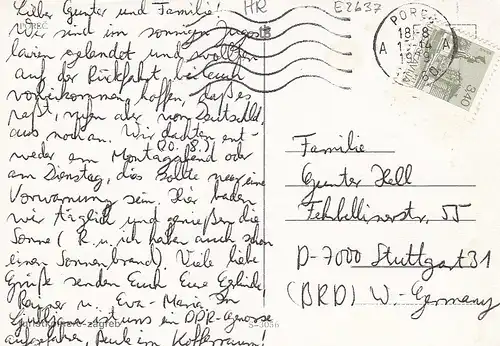 Lieber Gunter und Familie!
POREČ
Wir sind im sonnigen Jugos-
lawien gelandet und wollten
auf der Rückfahrt bei Euch
vorbeikommen, hoffen, daß es
paßt, rufen aber von Deutschld.
aus noch an. Wir dachten ent-
(20. 8.)
weder am Montagabend oder
am Dienstag, das sollte nur eine
Vorwarnung sein. Hier baden
wir täglich und genießen die
Sonne (R. u. ich haben auch schon
einen Sonnenbrand). Viele liebe
Grüße senden Euch Eure Gerlinde,
Rainer u. Eva-Maria. In
ist uns ein DDR-Genosse
aufgefahren, Beule im Kofferraum!
HR
E2637
POREČ
18-8
13-14
1979
A A
340
Familie
Gunter Hell
Fehrbellinerstr. 55
D-7000 Stuttgart 31
(BRD) W.-Germany
zagreb
S-3056